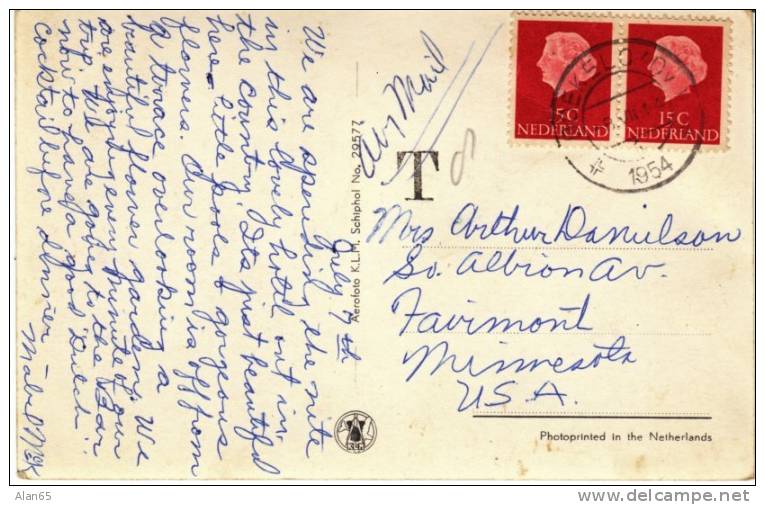 July 7th
We are spending the nite
in this lovely hotel out in
the country. Its just beautiful
here. Little pools & gorgeous
flowers. Our room is off from
a terrace overlooking a
beautiful flower garden. We
are enjoying every minute of our
trip. We are going to the Bar
now to have a good Dutch
cocktail before dinner
Mabel
Aerofoto K.L.M. Schiphol No. 29577
KLM
Air Mail
T
8
15C
NEDERLAND
15C
NEDERLAND
1954
Mrs Arthur Danielson
So. Albion Av.
Fairmont
Minnesota
U.S.A.
Photoprinted in the Netherlands
Alan65
www.delcampe.net